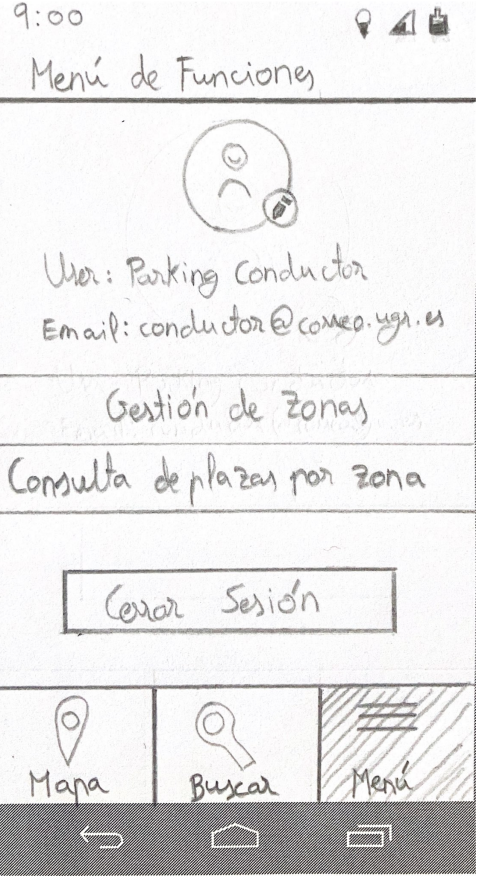 9:00
Menú de Funciones
User: Parking Conductor
Email: conductor@correo.ugr.es
Gestión de Zonas
Consulta de plazas por zona
Cerrar Sesión
Mapa
Buscar
Menú